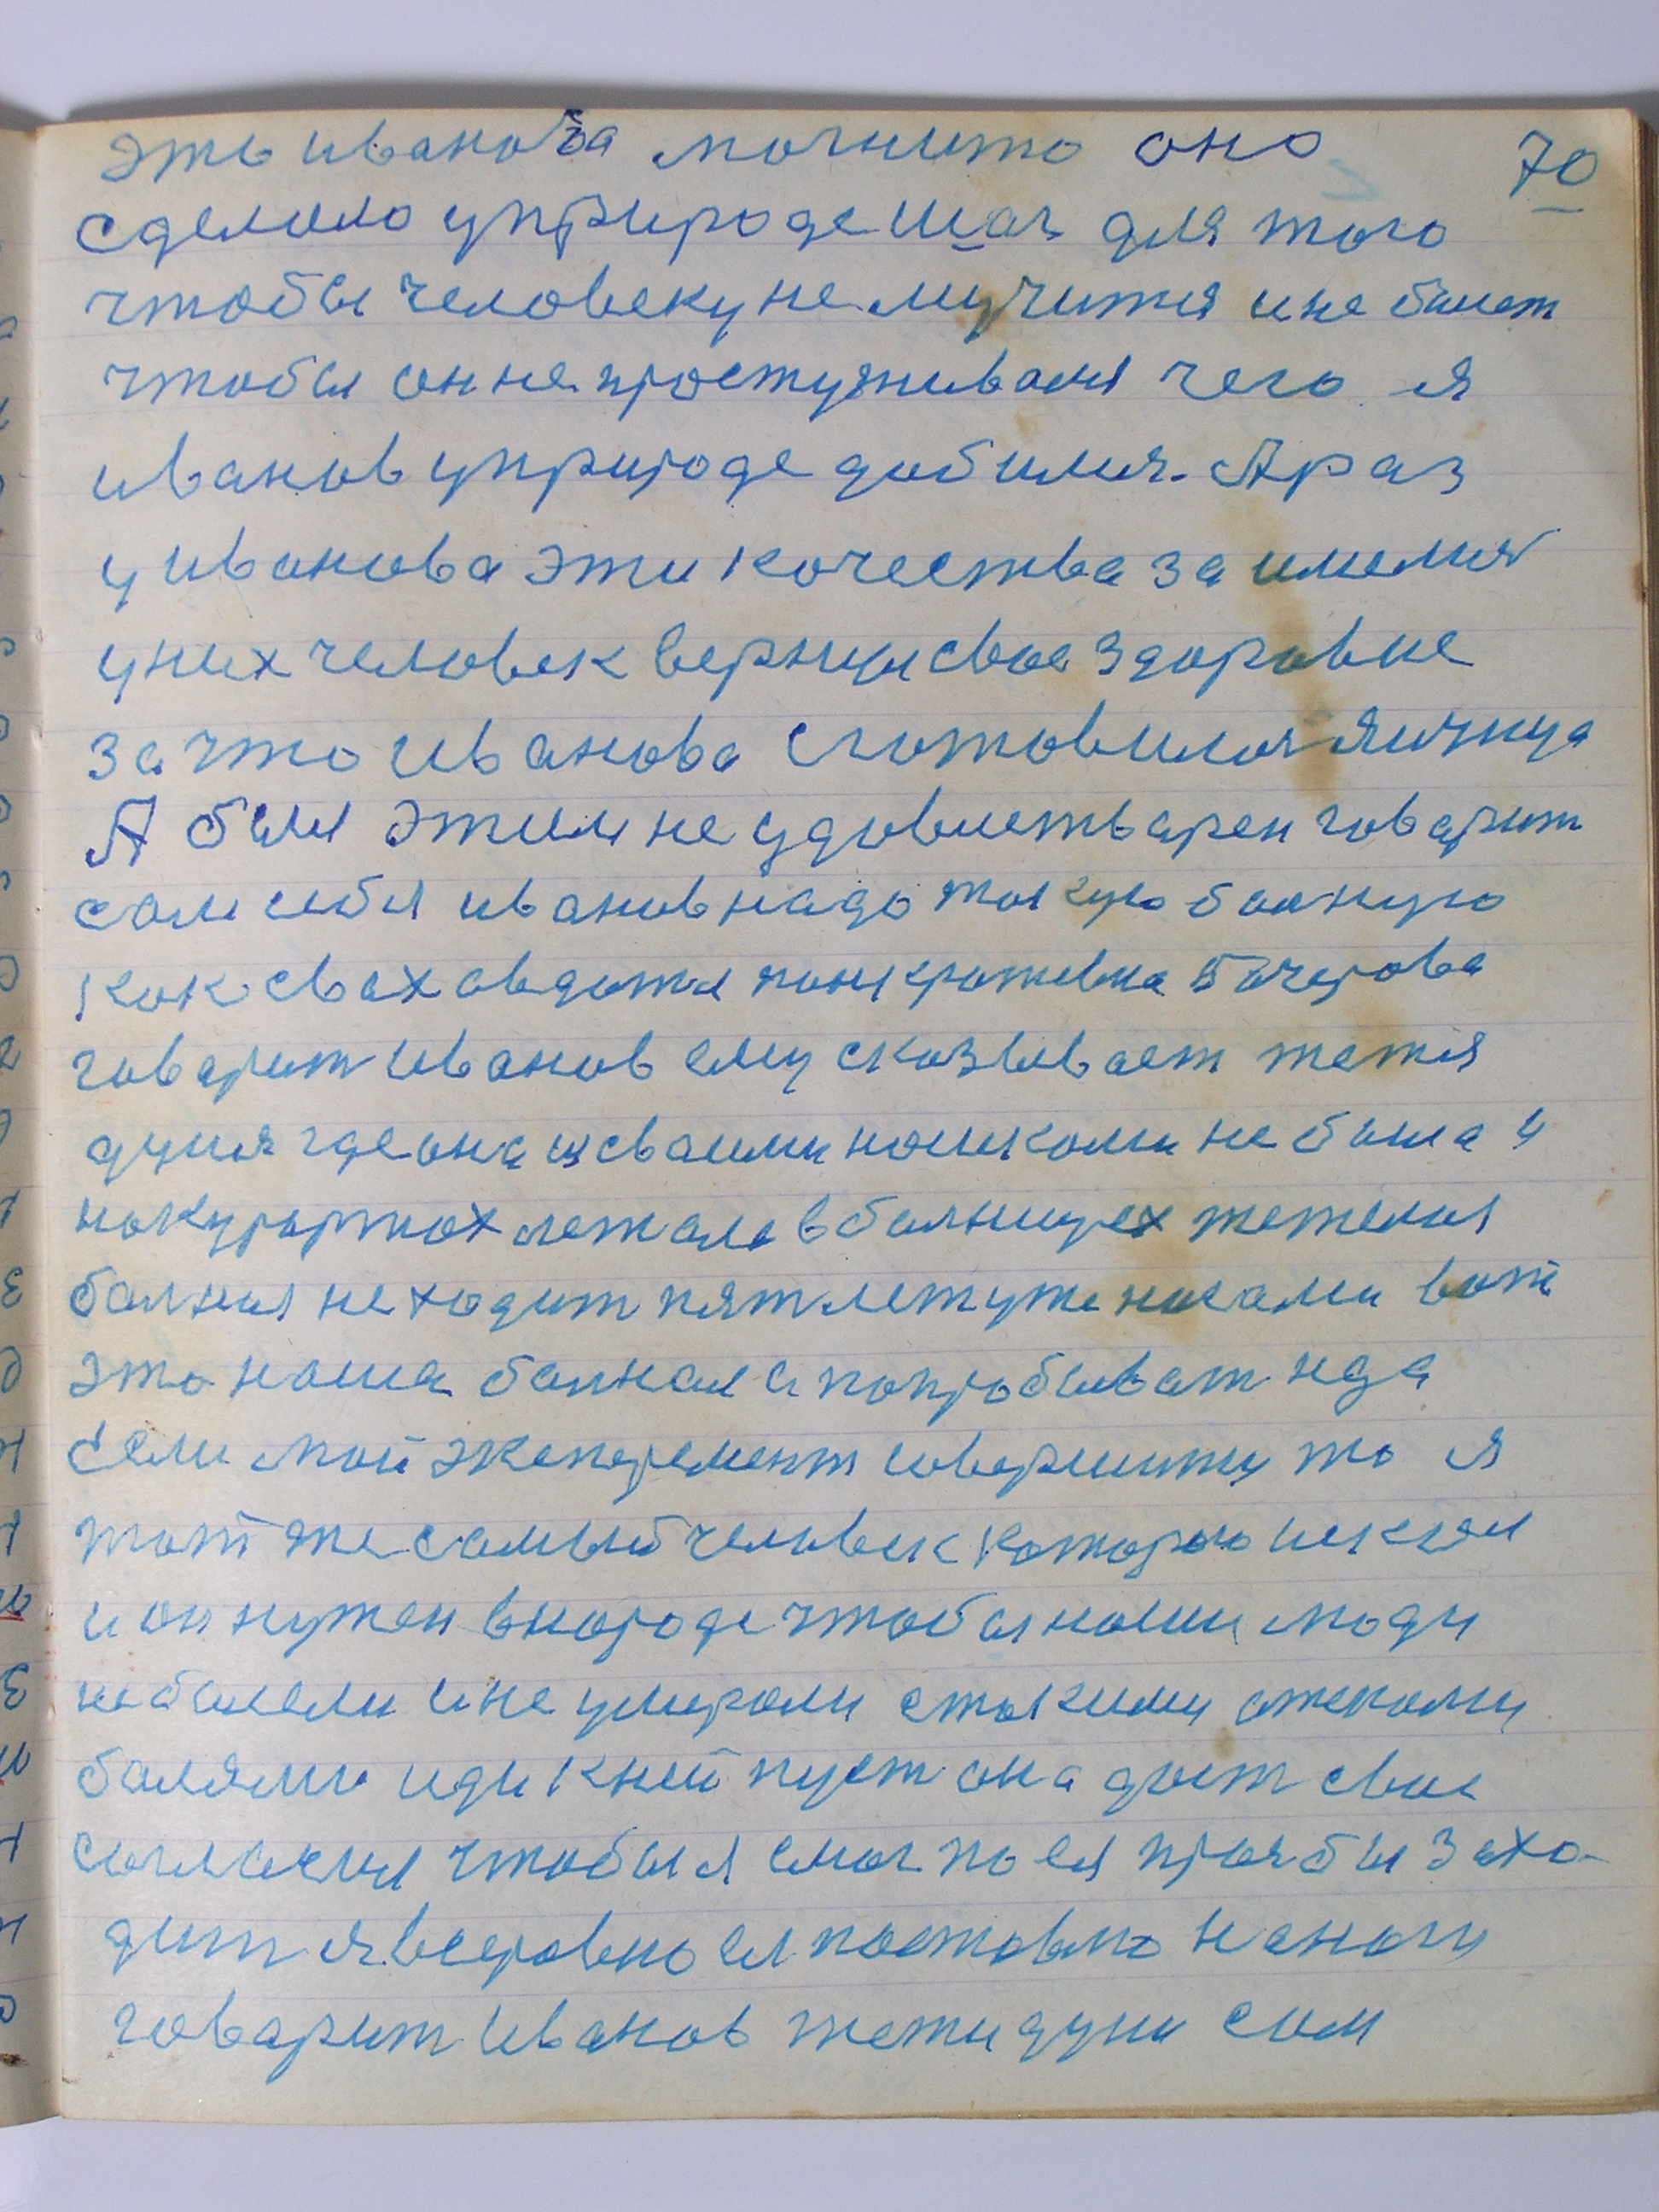 70
эть иванова могнито оно
сделоло уприроде шаг для того
чтобы человеку не мучится и не болет
чтобы он не простуживаля чего я
иванов уприроде добился. А раз
у иванова эти кочества заимелися
у них человек вернул свое здоровие
за что иванова сготовилоя яичница
А был этим не удовлетварен говарит
сам себя иванов надо такую болную
как свах авдотя панкратевна Бочарова
говарит иванов ему сказывает тетя
дуня где она и сваими ношкоми не была и
на курортох лежала в болницех тетеля
болная не ходит пят лет уже ногами вот
это ноша болная и попробыват нда
если мой эксперемент совершиту то я
тот же самый человек которого искал
и он нужен в нороде чтобы ноши люди
не болели и не умероли с такими
болями иди к ней пуст она дает свое
согласия чтобы я смог по ея прозбы захо-
дит я все ровно ея поставлю на ноги
говарит иванов тети дуни сам